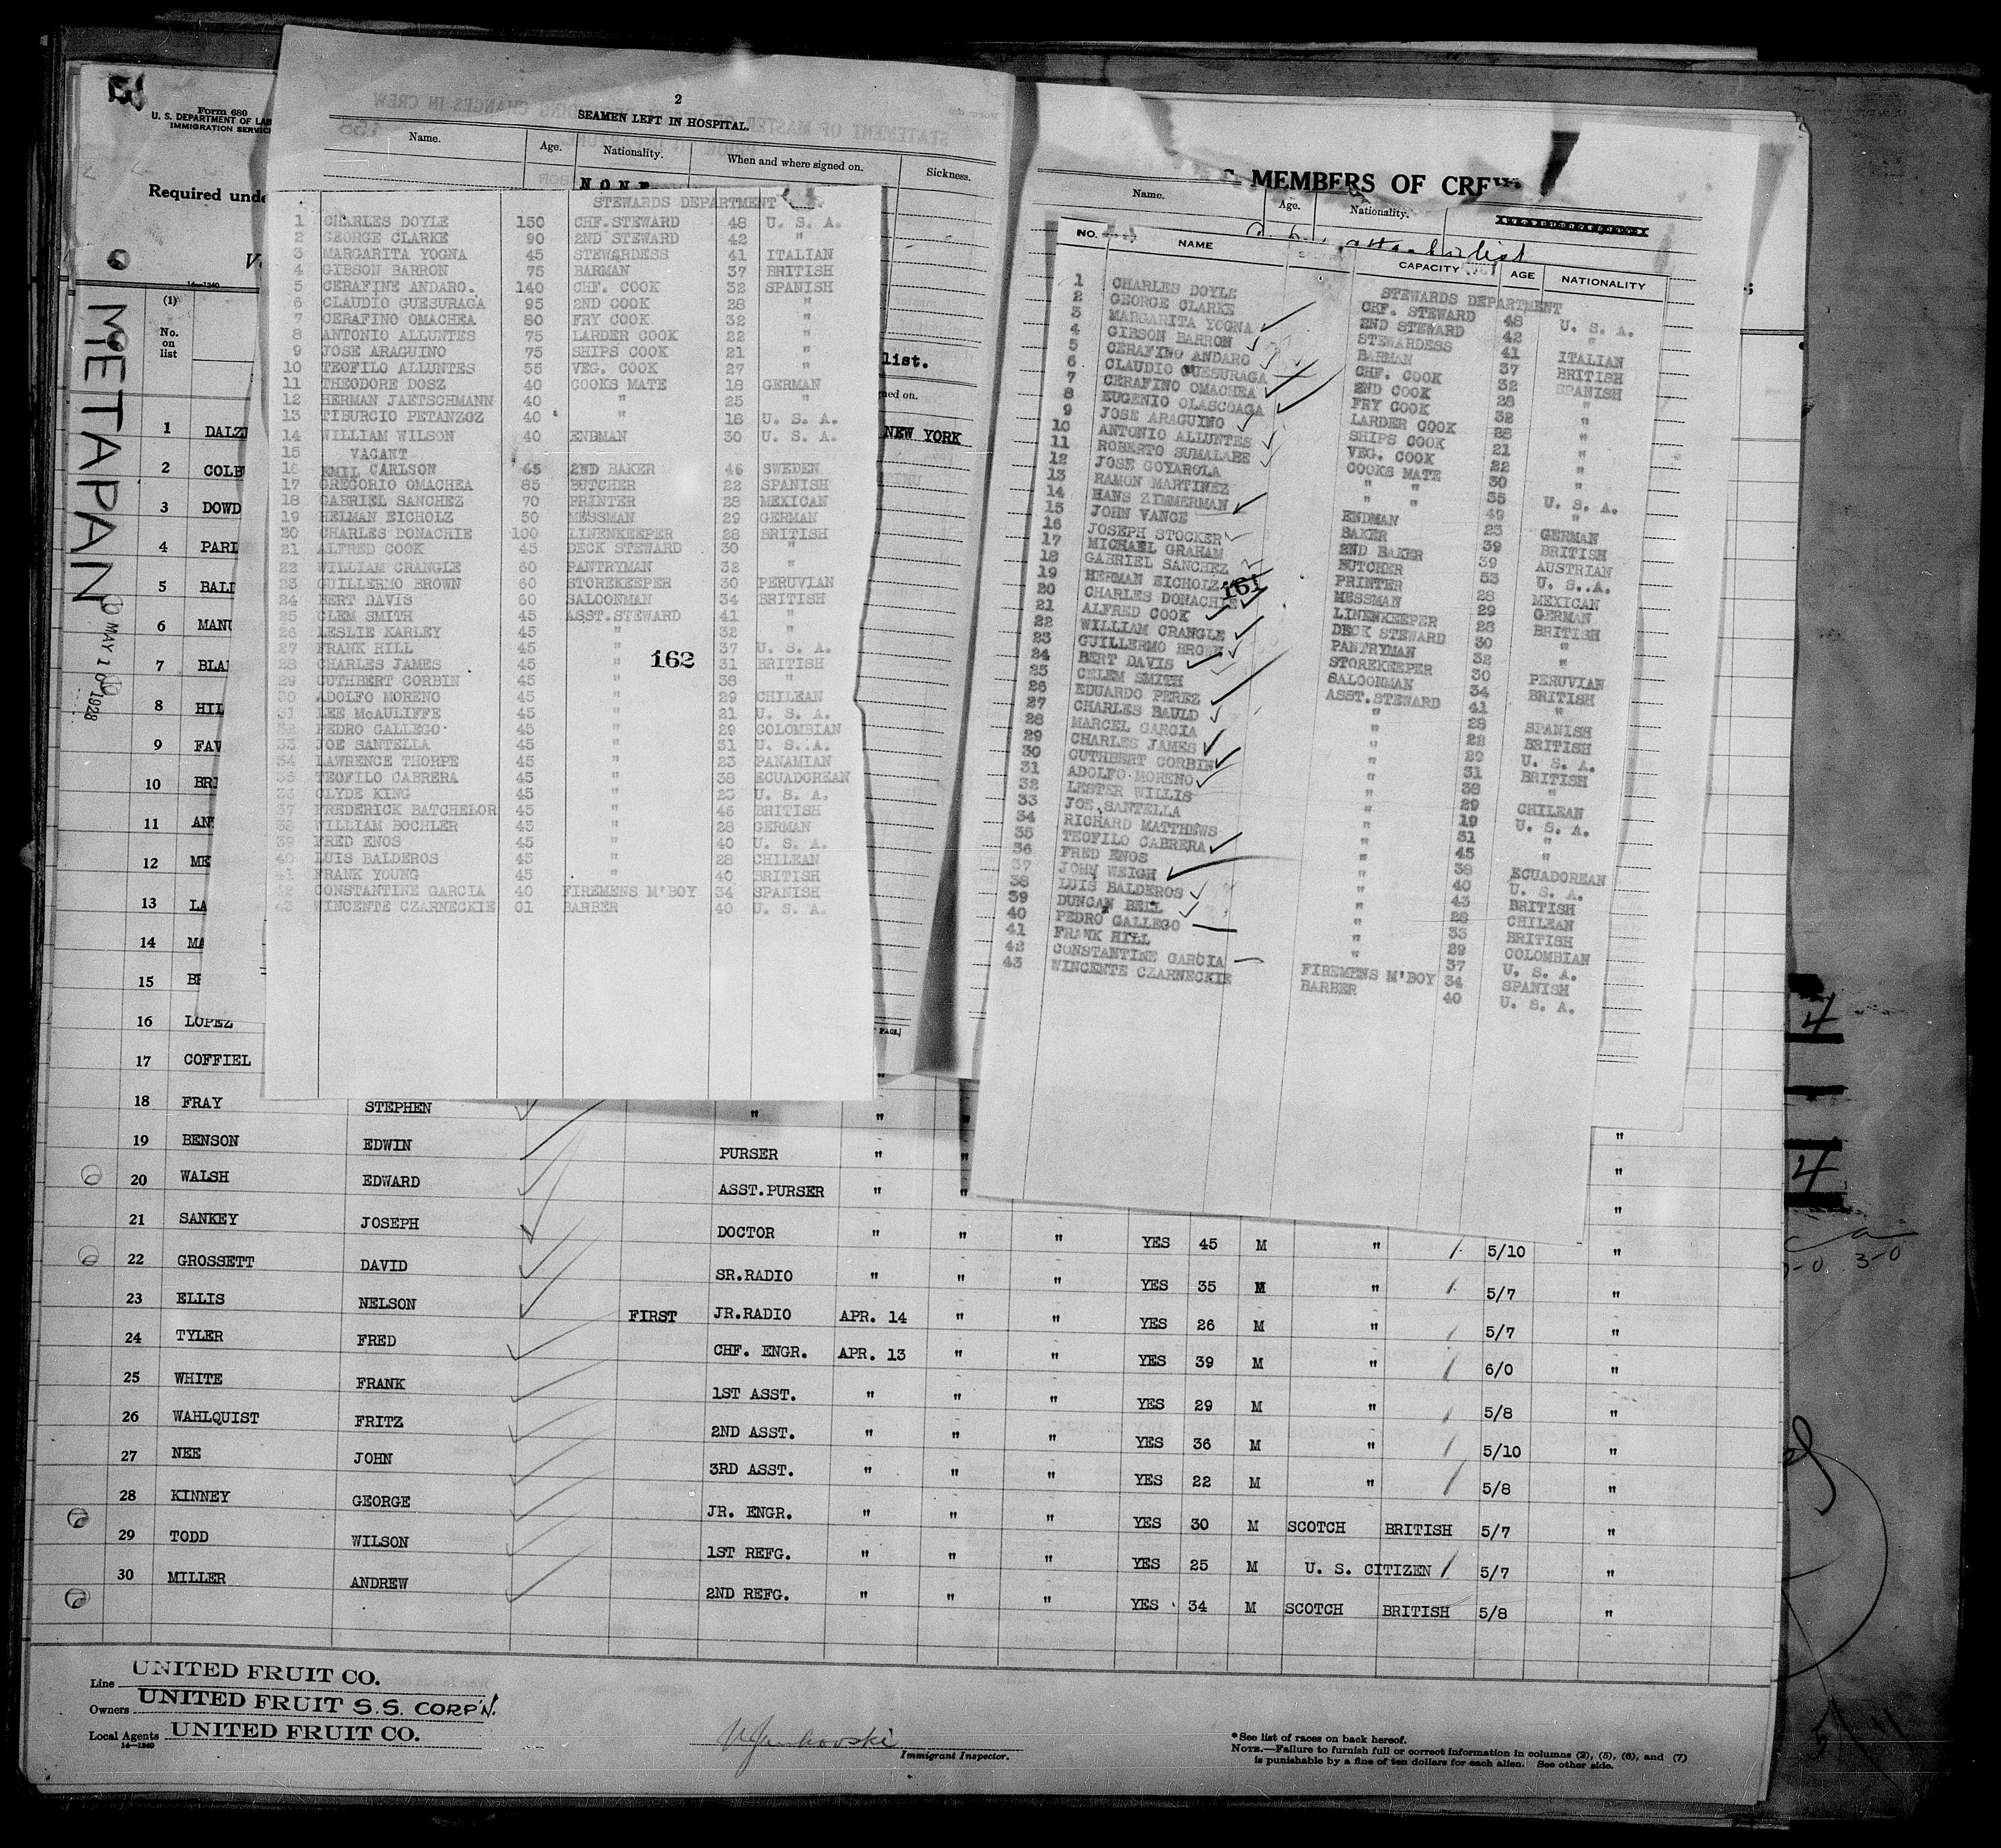 Form 680
U. S. DEPARTMENT OF LA
IMMIGRATION SERVIC
Required unde
METAPAN
MAY 10 1928
(1)
No. on list
2
SEAMEN LEFT IN HOSPITAL.
Name. Age. Nationality. When and where signed on. Sickness.
STEWARDS DEPARTMENT
1 CHARLES DOYLE 150 CHF.STEWARD 48 U. S. A.
2 GEORGE CLARKE 90 2ND STEWARD 42 "
3 MARGARITA YOGNA 45 STEWARDESS 41 ITALIAN
4 GIBSON BARRON 75 BARMAN 37 BRITISH
5 CERAFINE ANDARO. 140 CHF. COOK 32 SPANISH
6 CLAUDIO GUESURAGA 95 2ND COOK 28 "
7 CERAFINO OMACHEA 80 FRY COOK 32 "
8 ANTONIO ALLUNTES 75 LARDER COOK 22 "
9 JOSE ARAGUINO 75 SHIPS COOK 21 "
10 TEOFILO ALLUNTES 55 VEG. COOK 27 "
11 THEODORE DOSZ 40 COOKS MATE 18 GERMAN
12 HERMAN JAETSCHMANN 40 " 25 "
13 TIBURCIO PETANZOZ 40 " 18 U. S. A.
14 WILLIAM WILSON 40 ENDMAN 30 U. S. A.
15 VACANT
16 EMIL CARLSON 65 2ND BAKER 46 SWEDEN
17 GREGORIO OMACHEA 85 BUTCHER 22 SPANISH
18 GABRIEL SANCHEZ 70 PRINTER 28 MEXICAN
19 HELMAN EICHOLZ 50 MESSMAN 29 GERMAN
20 CHARLES DONACHIE 100 LINENKEEPER 28 BRITISH
21 ALFRED COOK 45 DECK STEWARD 30 "
22 WILLIAM CRANGLE 60 PANTRYMAN 32 "
23 GUILLERMO BROWN 60 STOREKEEPER 30 PERUVIAN
24 BERT DAVIS 60 SALOONMAN 34 BRITISH
25 CLEM SMITH 45 ASST.STEWARD 41 "
26 LESLIE KARLEY 45 " 32 "
27 FRANK HILL 45 " 37 U. S. A.
162
28 CHARLES JAMES 45 " 31 BRITISH
29 CUTHBERT CORBIN 45 " 38 "
30 ADOLFO MORENO 45 " 29 CHILEAN
31 LEE McAULIFFE 45 " 21 U. S. A.
32 PEDRO GALLEGO 45 " 29 COLOMBIAN
33 JOE SANTELLA 45 " 31 U. S. A.
34 LAWRENCE THORPE 45 " 23 PANAMIAN
35 TEOFILO CABRERA 45 " 38 ECUADOREAN
36 CLYDE KING 45 " 23 U. S. A.
37 FREDERICK BATCHELOR 45 " 46 BRITISH
38 WILLIAM BOCHLER 45 " 28 GERMAN
39 FRED ENOS 45 " 40 U. S. A.
40 LUIS BALDEROS 45 " 28 CHILEAN
41 FRANK YOUNG 45 " 40 BRITISH
42 CONSTANTINE GARCIA 40 FIREMENS M'BOY 34 SPANISH
43 WINCENTE CZARNECKIE 01 BARBER 40 U. S. A.
list.
ned on.
NEW YORK
MEMBERS OF CREW
Name. Age. Nationality.
NO. NAME CAPACITY AGE NATIONALITY
STEWARDS DEPARTMENT
1 CHARLES DOYLE CHF. STEWARD 48 U. S. A.
2 GEORGE CLARKE 2ND STEWARD 42 "
3 MARGARITA YOGNA STEWARDESS 41 ITALIAN
4 GIBSON BARRON BARMAN 37 BRITISH
5 CERAFINO ANDARO CHF. COOK 32 SPANISH
6 CLAUDIO GUESURAGA 2ND COOK 28 "
7 CERAFINO OMACHEA FRY COOK 32 "
8 EUGENIO OLASCOAGA LARDER COOK 28 "
9 JOSE ARAGUINO SHIPS COOK 21 "
10 ANTONIO ALLUNTES VEG. COOK 22 "
11 ROBERTO SUMALABE COOKS MATE 30 "
12 JOSE GOYAROLA " " 35 U. S. A.
13 RAMON MARTINEZ " " 49 "
14 HANS ZIMMERMAN ENDMAN 23 GERMAN
15 JOHN VANCE BAKER 39 BRITISH
16 JOSEPH STOCKER 2ND BAKER 39 AUSTRIAN
17 MICHAEL GRAHAM BUTCHER 53 U. S. A.
18 GABRIEL SANCHEZ PRINTER 28 MEXICAN
19 HERMAN EICHOLZ MESSMAN 29 GERMAN
161
20 CHARLES DONACHIE LINENKEEPER 28 BRITISH
21 ALFRED COOK DECK STEWARD 30 "
22 WILLIAM CRANGLE PANTRYMAN 32 "
23 GUILLERMO BROWN STOREKEEPER 30 PERUVIAN
24 BERT DAVIS SALOONMAN 34 BRITISH
25 CHLEM SMITH ASST.STEWARD 41 "
26 EDUARDO PEREZ " 28 SPANISH
27 CHARLES BAULD " 22 BRITISH
28 MARCEL GARCIA " 29 U. S. A.
29 CHARLES JAMES " 31 BRITISH
30 CUTHBERT CORBIN " 38 "
31 ADOLFO MORENO " 29 CHILEAN
32 LESTER WILLIS " 19 U. S. A.
33 JOE SANTELLA " 31 "
34 RICHARD MATTHEWS " 45 "
35 TEOFILO CABRERA " 38 ECUADOREAN
36 FRED ENOS " 40 U. S. A.
37 JOHN WEIGH " 43 BRITISH
38 LUIS BALDEROS " 28 CHILEAN
39 DUNCAN BELL " 35 BRITISH
40 PEDRO GALLEGO " 29 COLOMBIAN
41 FRANK HILL " 37 U. S. A.
42 CONSTANTINE GARCIA FIREMENS M'BOY 34 SPANISH
43 WINCENTE CZARNECKIE BARBER 40 U. S. A.
1 DALZ
2 COLB
3 DOWD
4 PARI
5 BALI
6 MANU
7 BLA
8 HIL
9 FAV
10 BRI
11 AN
12 ME
13 LA
14 MA
15 BE
16 LOPEZ
17 COFFIEL
18 FRAY STEPHEN " "
19 BENSON EDWIN PURSER " "
20 WALSH EDWARD ASST.PURSER " "
21 SANKEY JOSEPH DOCTOR " " " YES 45 M " 5/10 "
22 GROSSETT DAVID SR.RADIO " " " YES 35 M " 5/7 "
23 ELLIS NELSON FIRST JR.RADIO APR. 14 " " YES 26 M " 5/7 "
24 TYLER FRED CHF. ENGR. APR. 13 " " YES 39 M " 6/0 "
25 WHITE FRANK 1ST ASST. " " " YES 29 M " 5/8 "
26 WAHLQUIST FRITZ 2ND ASST. " " " YES 36 M " 5/10 "
27 NEE JOHN 3RD ASST. " " " YES 22 M " 5/8 "
28 KINNEY GEORGE JR. ENGR. " " " YES 30 M SCOTCH BRITISH 5/7 "
29 TODD WILSON 1ST REFG. " " " YES 25 M U. S. CITIZEN 5/7 "
30 MILLER ANDREW 2ND REFG. " " " YES 34 M SCOTCH BRITISH 5/8 "
Line UNITED FRUIT CO.
Owners UNITED FRUIT S.S. CORP'N.
Local Agents UNITED FRUIT CO.
14-1240
Immigrant Inspector.
*See list of races on back hereof.
NOTE.—Failure to furnish full or correct information in columns (2), (5), (6), and (7)
is punishable by a fine of ten dollars for each alien. See other side.